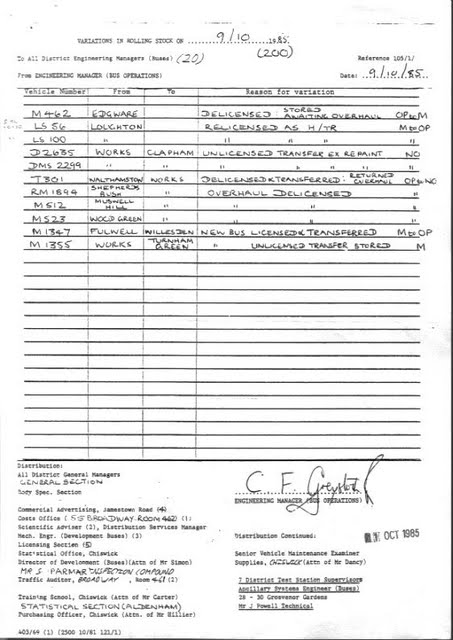 VARIATIONS IN ROLLING STOCK ON 9/10 1985
(200)
To All District Engineering Managers (Buses) (20) Reference 105/1/
From ENGINEERING MANAGER (BUS OPERATIONS) Date: 9/10/85
Vehicle Number From To Reason for variation
M462 EDGWARE DELICENSED : STORED AWAITING OVERHAUL OP to M
LS 56 LOUGHTON RELICENSED AS H/TR M to OP
LS 100 " " " " "
D2635 WORKS CLAPHAM UNLICENSED TRANSFER EX REPAINT NO
DMS 2299 " " " " " "
T301 WALTHAMSTOW WORKS DELICENSED & TRANSFERRED : RETURNED OVERHAUL OP to NO
RM1894 SHEPHERDS BUSH " OVERHAUL DELICENSED "
M512 MUSWELL HILL " " " "
M523 WOOD GREEN " " " "
M1347 FULWELL WILLESDEN NEW BUS LICENSED & TRANSFERRED M to OP
M1355 WORKS TURNHAM GREEN " UNLICENSED TRANSFER STORED M
Distribution:
All District General Managers
GENERAL SECTION
Body Spec. Section
C F Greystock
ENGINEERING MANAGER (BUS OPERATIONS)
Commercial Advertising, Jamestown Road (4)
Costs Office (55 BROADWAY ROOM 462) (1)
Scientific Adviser (2), Distribution Services Manager
Mech. Engr. (Development Buses) (3)
Licensing Section (5)
Statistical Office, Chiswick
Director of Development (Buses)(Attn of Mr Simon)
MR S PARMAR INSPECTION COMPOUND
Traffic Auditor, BROADWAY, Room 461 (2)
Training School, Chiswick (Attn of Mr Carter)
STATISTICAL SECTION (ALDENHAM)
Purchasing Officer, Chiswick (Attn of Mr Hillier)
Distribution Continued: OCT 1985
Senior Vehicle Maintenance Examiner
Supplies, CHISWICK (Attn of Mr Dancy)
7 District Test Station Supervisors
Ancillary Systems Engineer (Buses)
28 - 30 Grosvenor Gardens
Mr J Powell Technical
403/69 (1) (2500 10/81 121/1)